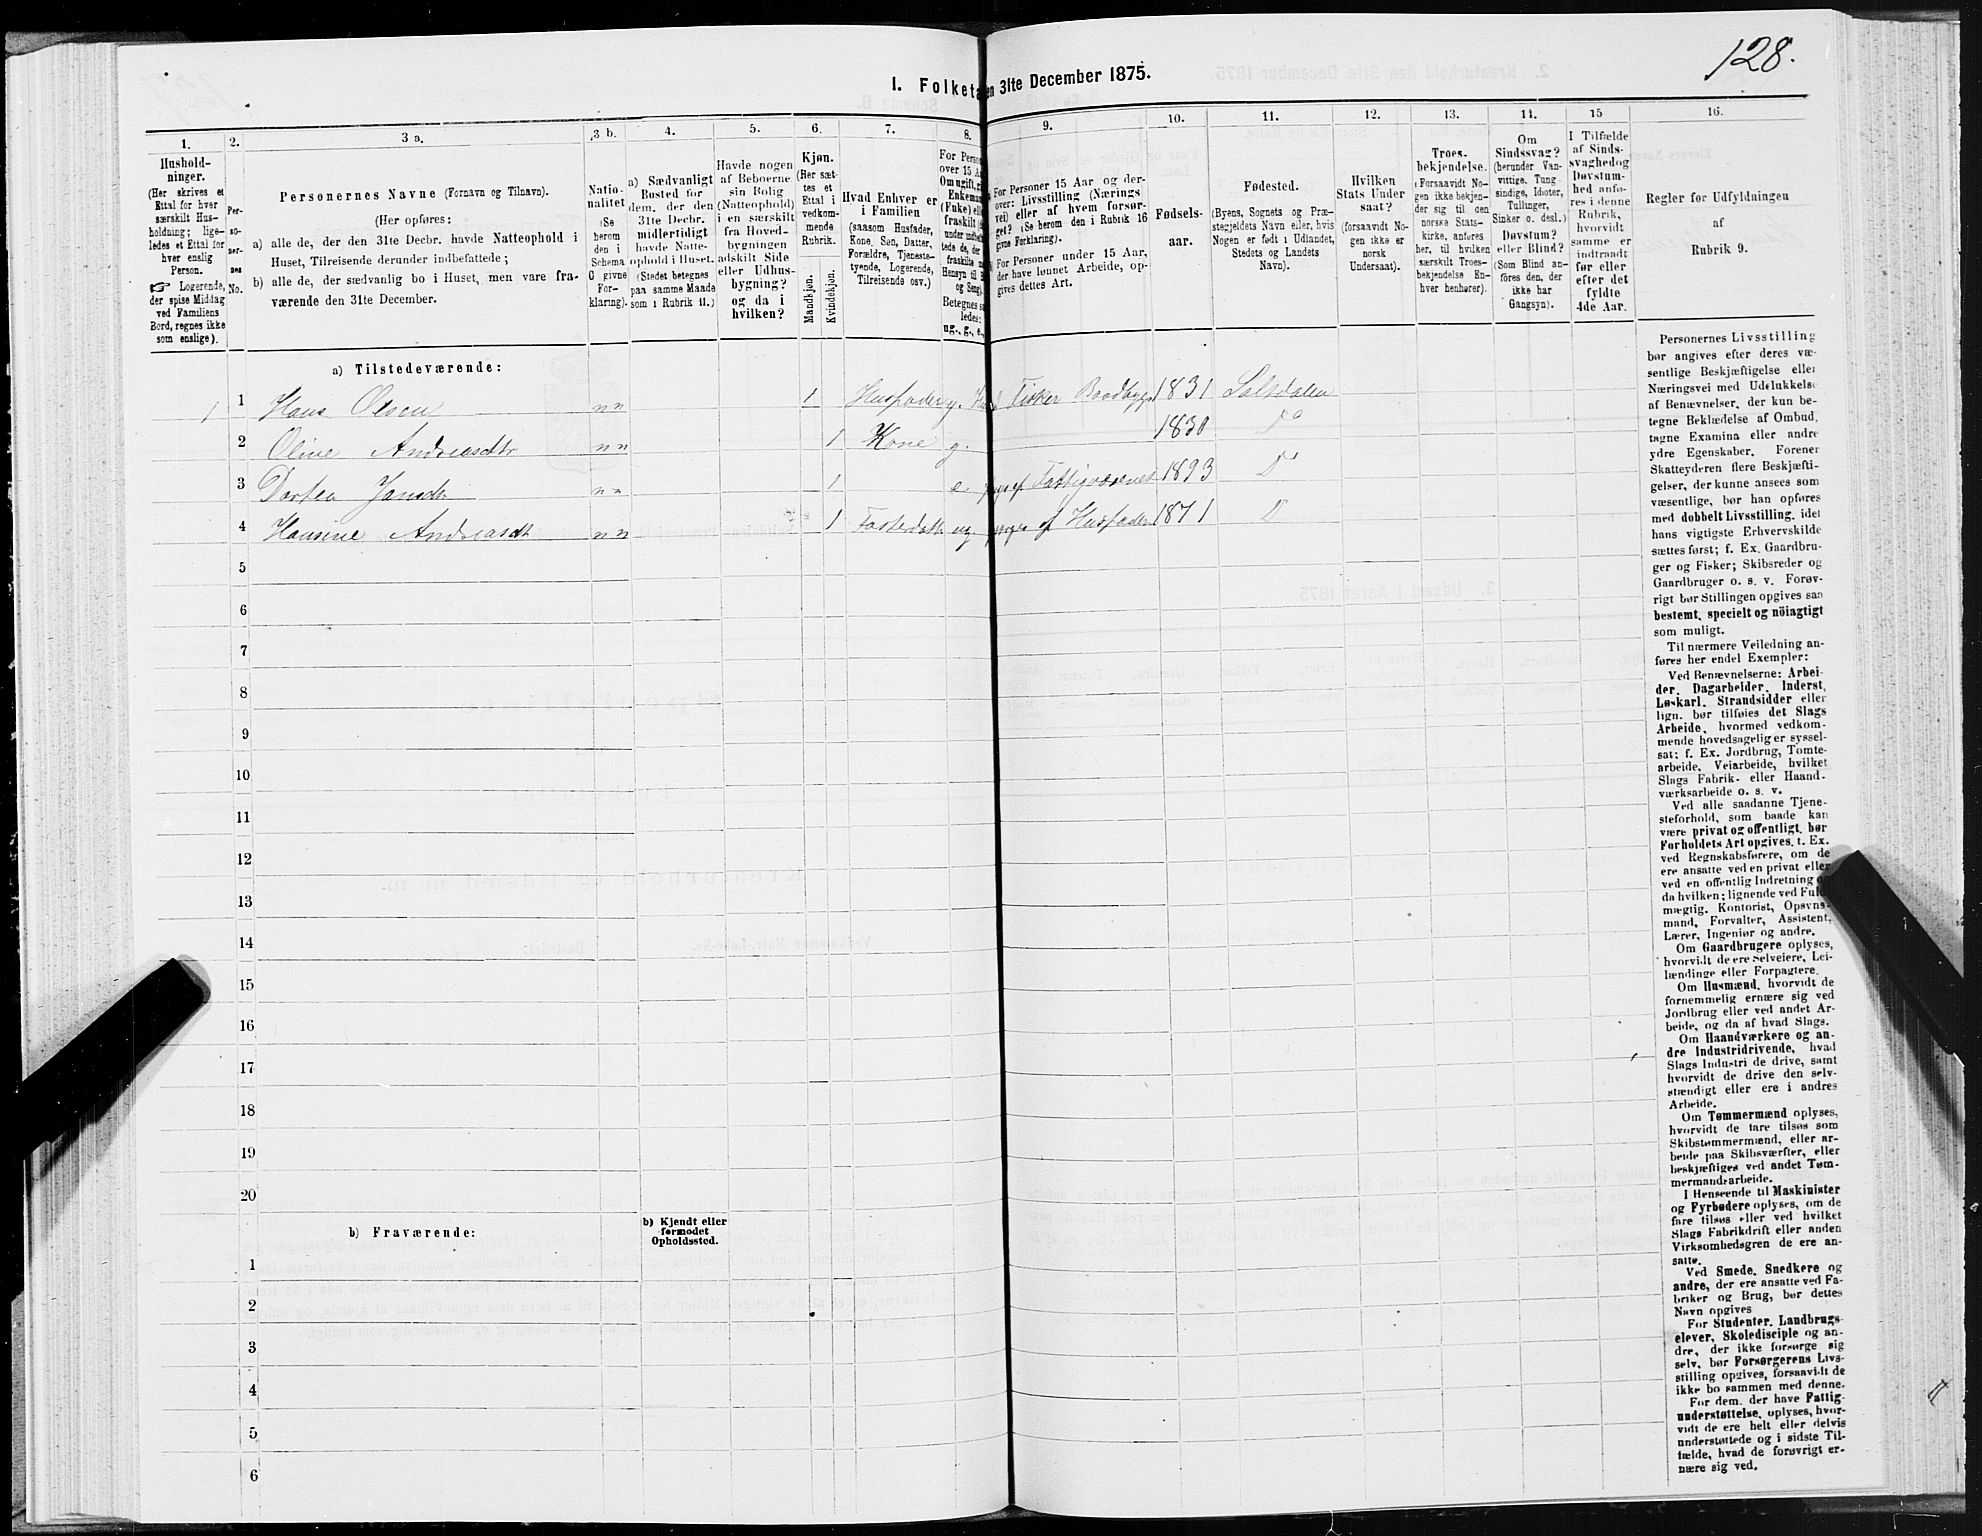 128.
I. Folketa en 31te December 1875.
1.
Hushold-
ninger.
(Her skrives et
Ettal for hver
særskilt Hus-
holdning; lige-
ledes et Ettal for
hver enslig
Person.
☞ Logerende,
der spise Middag
ved Familiens
Bord, regnes ikke
som enslige).
2.
Per-
so-
ner-
nes
No.
3 a.
Personernes Navne (Fornavn og Tilnavn).
(Her opføres:
a) alle de, der den 31te Decbr. havde Natteophold i
Huset, Tilreisende derunder indbefattede;
b) alle de, der sædvanlig bo i Huset, men vare fra-
værende den 31te December.
3 b.
Natio-
nalitet
(Se
herom
den i
Schema
G givne
For-
klaring).
4.
a) Sædvanligt
Bosted for
dem, der den
31te Decbr.
midlertidigt
havde Natte-
ophold i Huset.
(Stedet betegnes
paa samme Maade
som i Rubrik 11.)
5.
Havde nogen
af Beboerne
sin Bolig
(Natteophold)
i en særskilt
fra Hoved-
bygningen
adskilt Side
eller Udhus-
bygning?
og da i
hvilken?
6.
Kjøn.
(Her sæt-
tes et
Ettal i
vedkom-
mende
Rubrik.
Mandkjøn.
Kvindekjøn.
7.
Hvad Enhver er
i Familien
(saasom Husfader,
Kone, Søn, Datter,
Forældre, Tjeneste-
tyende, Logerende,
Tilreisende osv.)
8.
For Perso
over 15 A
Om ugift, gi
Enkeman
(Enke) ell
fraskilt (
Betegnes s
ledes:
ug., g., e.,
9.
For Personer 15 Aar og der-
over: Livsstilling (Nærings
vei) eller af hvem forsør-
get? (Se herom den i Rubrik 16
givne Forklaring).
For Personer under 15 Aar,
der have lønnet Arbeide, op-
gives dettes Art.
10.
Fødsels-
aar.
11.
Fødested.
(Byens, Sognets og Præ-
stegjeldets Navn eller, hvis
Nogen er født i Udlandet,
Stedets og Landets
Navn).
12.
Hvilken
Stats Under
saat?
(forsaavidt No-
gen ikke er
norsk
Undersaat).
13.
Troes-
bekjendelse.
(Forsaavidt No-
gen ikke bekjen-
der sig til den
norske Stats-
kirke, anføres
her, til hvilken
særskilt Troes-
bekjendelse En-
hver henhører).
14.
Om
Sindssvag?
(herunder Van-
vittige, Tung-
sindige, Idioter,
Tullinger,
Sinker o. desl.)
Døvstum?
eller Blind?
(Som Blind an-
føres den, der
ikke har
Gangsyn).
15
I Tilfælde
af Sinds-
svaghed og
Døvstum-
hed anfø-
res i denne
Rubrik,
hvorvidt
samme er
indtraadt
før eller
efter det
fyldte
4de Aar.
16.
Regler for Udfyldningen
af
Rubrik 9.
a) Tilstedeværende:
1 1 Hans Olsen nn 1 Husfader g. Fisker Baadbygg 1831 Saltdalen
2 Oline Andreasdtr nn 1 Kone g. 1830 Do
3 Dortea Jansdtr nn 1 e Fattigvæsenet 1893 D
4 Hansine Andreasdt nn 1 Fosterdattr ug. forges af Husfader 1871 D
5
6
7
8
9
10
11
12
13
14
15
16
17
18
19
20
b) Fraværende:
b) Kjendt eller
formodet
Opholdssted.
1
2
3
4
5
6
Personernes Livsstilling
bør angives efter deres væ-
sentlige Beskjæftigelse eller
Næringsvei med Udelukkelse
af Benævnelser, der kun be-
tegne Beklædelse af Ombud,
tagne Examina eller andre
ydre Egenskaber. Forener
Skatteyderen flere Beskjæfti-
gelser, der kunne ansees som
væsentlige, bør han opføres
med dobbelt Livsstilling, idet
hans vigtigste Erhvervskilde
sættes først; f. Ex. Gaardbru-
ger og Fisker; Skibsreder og
Gaardbruger o. s. v. Forøv-
rigt bør Stillingen opgives saa
bestemt, specielt og nöiagtigt
som muligt.
Til nærmere Veiledning an-
føres her endel Exempler:
Ved Benævnelserne: Arbei-
der, Dagarbeider, Inderst,
Løskarl, Strandsidder eller
lign. bør tilføies det Slags
Arbeide, hvormed vedkom-
mende hovedsagelig er syssel-
sat; f. Ex. Jordbrug, Tomte-
arbeide, Veiarbeide, hvilket
Slags Fabrik- eller Haand-
værksarbeide o. s. v.
Ved alle saadanne Tjene-
steforhold, som baade kan
være privat og offentligt, bør
Forholdets Art opgives, t. Ex.
ved Regnskabsførere, om de
ere ansatte ved en privat eller
ved en offentlig Indretning og
da hvilken; lignende ved Fuld-
mægtig, Kontorist, Opsyns-
mand, Forvalter, Assistent,
Lærer, Ingeniør og andre.
Om Gaardbrugere oplyses,
hvorvidt de ere Selveiere, Lei-
lændinge eller Forpagtere.
Om Husmænd, hvorvidt de
fornemmelig ernære sig ved
Jordbrug eller ved andet Ar-
beide, og da af hvad Slags.
Om Haandværkere og an-
dre Industridrivende, hvad
Slags Industri de drive, samt
hvorvidt de drive den selv-
stændigt eller ere i andres
Arbeide.
Om Tømmermænd oplyses,
hvorvidt de fare tilsøs som
Skibstømmermænd, eller ar-
beide paa Skibsværfter, eller
beskjæftiges ved andet Tøm-
mermandsarbeide.
I Henseende til Maskinister
og Fyrbødere oplyses, om de
fare tilsøs eller ved hvilket
Slags Fabrikdrift eller anden
Virksomhedsgren de ere an-
satte.
Ved Smede, Snedkere og
andre, der ere ansatte ved Fa-
briker og Brug, bør dettes
Navn opgives
For Studenter, Landbrugs-
elever, Skoledisciple og an-
dre, der ikke forsørge sig
selv, bør Forsørgerens Livs-
stilling opgives, forsaavidt de
ikke bo sammen med denne.
For dem, der have Fattig-
understøttelse, oplyses, hvor-
vidt de ere helt eller delvis
understøttede og i sidste Til-
fælde, hvad de forøvrigt er-
nære sig ved.